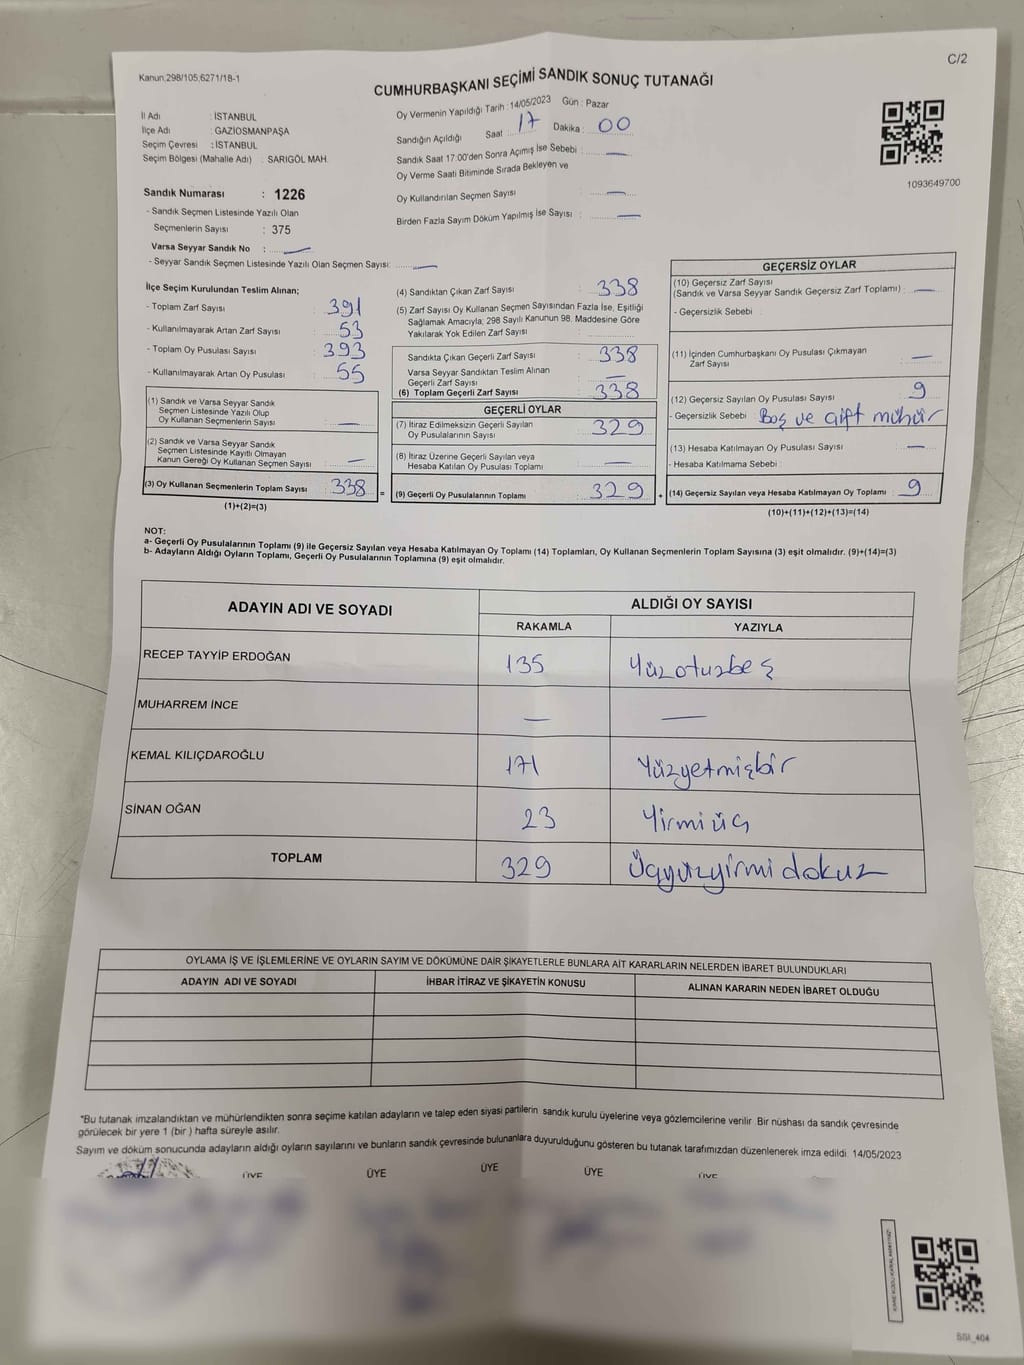 C/2
Kanun,298/105,6271/18-1
CUMHURBAŞKANI SEÇİMİ SANDIK SONUÇ TUTANAĞI
İl Adı : İSTANBUL
İlçe Adı : GAZİOSMANPAŞA
Seçim Çevresi : İSTANBUL
Seçim Bölgesi (Mahalle Adı) : SARIGÖL MAH.
Oy Vermenin Yapıldığı Tarih : 14/05/2023 Gün : Pazar
Sandığın Açıldığı Saat : 17 Dakika : 00
Sandık Saat 17:00'den Sonra Açımış İse Sebebi : —
Oy Verme Saati Bitiminde Sırada Bekleyen ve
Oy Kullandırılan Seçmen Sayısı : —
Birden Fazla Sayım Döküm Yapılmış İse Sayısı : —
1093649700
Sandık Numarası : 1226
- Sandık Seçmen Listesinde Yazılı Olan
Seçmenlerin Sayısı : 375
Varsa Seyyar Sandık No : —
- Seyyar Sandık Seçmen Listesinde Yazılı Olan Seçmen Sayısı: —
İlçe Seçim Kurulundan Teslim Alınan;
- Toplam Zarf Sayısı : 391
- Kullanılmayarak Artan Zarf Sayısı : 53
- Toplam Oy Pusulası Sayısı : 393
- Kullanılmayarak Artan Oy Pusulası : 55
(1) Sandık ve Varsa Seyyar Sandık
Seçmen Listesinde Yazılı Olup
Oy Kullanan Seçmenlerin Sayısı : —
(2) Sandık ve Varsa Seyyar Sandık
Seçmen Listesinde Kayıtlı Olmayan
Kanun Gereği Oy Kullanan Seçmen Sayısı : —
(3) Oy Kullanan Seçmenlerin Toplam Sayısı : 338 =
(1)+(2)=(3)
(4) Sandıktan Çıkan Zarf Sayısı : 338
(5) Zarf Sayısı Oy Kullanan Seçmen Sayısından Fazla İse, Eşitliği
Sağlamak Amacıyla; 298 Sayılı Kanunun 98. Maddesine Göre
Yakılarak Yok Edilen Zarf Sayısı :
Sandıkta Çıkan Geçerli Zarf Sayısı : 338
Varsa Seyyar Sandıktan Teslim Alınan
Geçerli Zarf Sayısı : —
(6) Toplam Geçerli Zarf Sayısı : 338
GEÇERLİ OYLAR
(7) İtiraz Edilmeksizin Geçerli Sayılan
Oy Pusulalarının Sayısı : 329
(8) İtiraz Üzerine Geçerli Sayılan veya
Hesaba Katılan Oy Pusulası Toplamı : —
(9) Geçerli Oy Pusulalarının Toplamı : 329 +
GEÇERSİZ OYLAR
(10) Geçersiz Zarf Sayısı
(Sandık ve Varsa Seyyar Sandık Geçersiz Zarf Toplamı) : —
- Geçersizlik Sebebi :
(11) İçinden Cumhurbaşkanı Oy Pusulası Çıkmayan
Zarf Sayısı : —
(12) Geçersiz Sayılan Oy Pusulası Sayısı : 9
- Geçersizlik Sebebi : Boş ve çift mühür
(13) Hesaba Katılmayan Oy Pusulası Sayısı : —
- Hesaba Katılmama Sebebi :
(14) Geçersiz Sayılan veya Hesaba Katılmayan Oy Toplamı : 9
(10)+(11)+(12)+(13)=(14)
NOT:
a- Geçerli Oy Pusulalarının Toplamı (9) ile Geçersiz Sayılan veya Hesaba Katılmayan Oy Toplamı (14) Toplamları, Oy Kullanan Seçmenlerin Toplam Sayısına (3) eşit olmalıdır. (9)+(14)=(3)
b- Adayların Aldığı Oyların Toplamı, Geçerli Oy Pusulalarının Toplamına (9) eşit olmalıdır.
ADAYIN ADI VE SOYADI ALDIĞI OY SAYISI
RAKAMLA YAZIYLA
RECEP TAYYİP ERDOĞAN 135 Yüzotuzbeş
MUHARREM İNCE — —
KEMAL KILIÇDAROĞLU 171 Yüzyetmişbir
SİNAN OĞAN 23 Yirmiüç
TOPLAM 329 Üçyüzyirmi dokuz
OYLAMA İŞ VE İŞLEMLERİNE VE OYLARIN SAYIM VE DÖKÜMÜNE DAİR ŞİKAYETLERLE BUNLARA AİT KARARLARIN NELERDEN İBARET BULUNDUKLARI
ADAYIN ADI VE SOYADI İHBAR İTİRAZ VE ŞİKAYETİN KONUSU ALINAN KARARIN NEDEN İBARET OLDUĞU
*Bu tutanak imzalandıktan ve mühürlendikten sonra seçime katılan adayların ve talep eden siyasi partilerin sandık kurulu üyelerine veya gözlemcilerine verilir. Bir nüshası da sandık çevresinde
görülecek bir yere 1 (bir) hafta süreyle asılır.
Sayım ve döküm sonucunda adayların aldığı oyların sayılarını ve bunların sandık çevresinde bulunanlara duyurulduğunu gösteren bu tutanak tarafımızdan düzenlenerek imza edildi. 14/05/2023
ÜYE ÜYE ÜYE ÜYE ÜYE